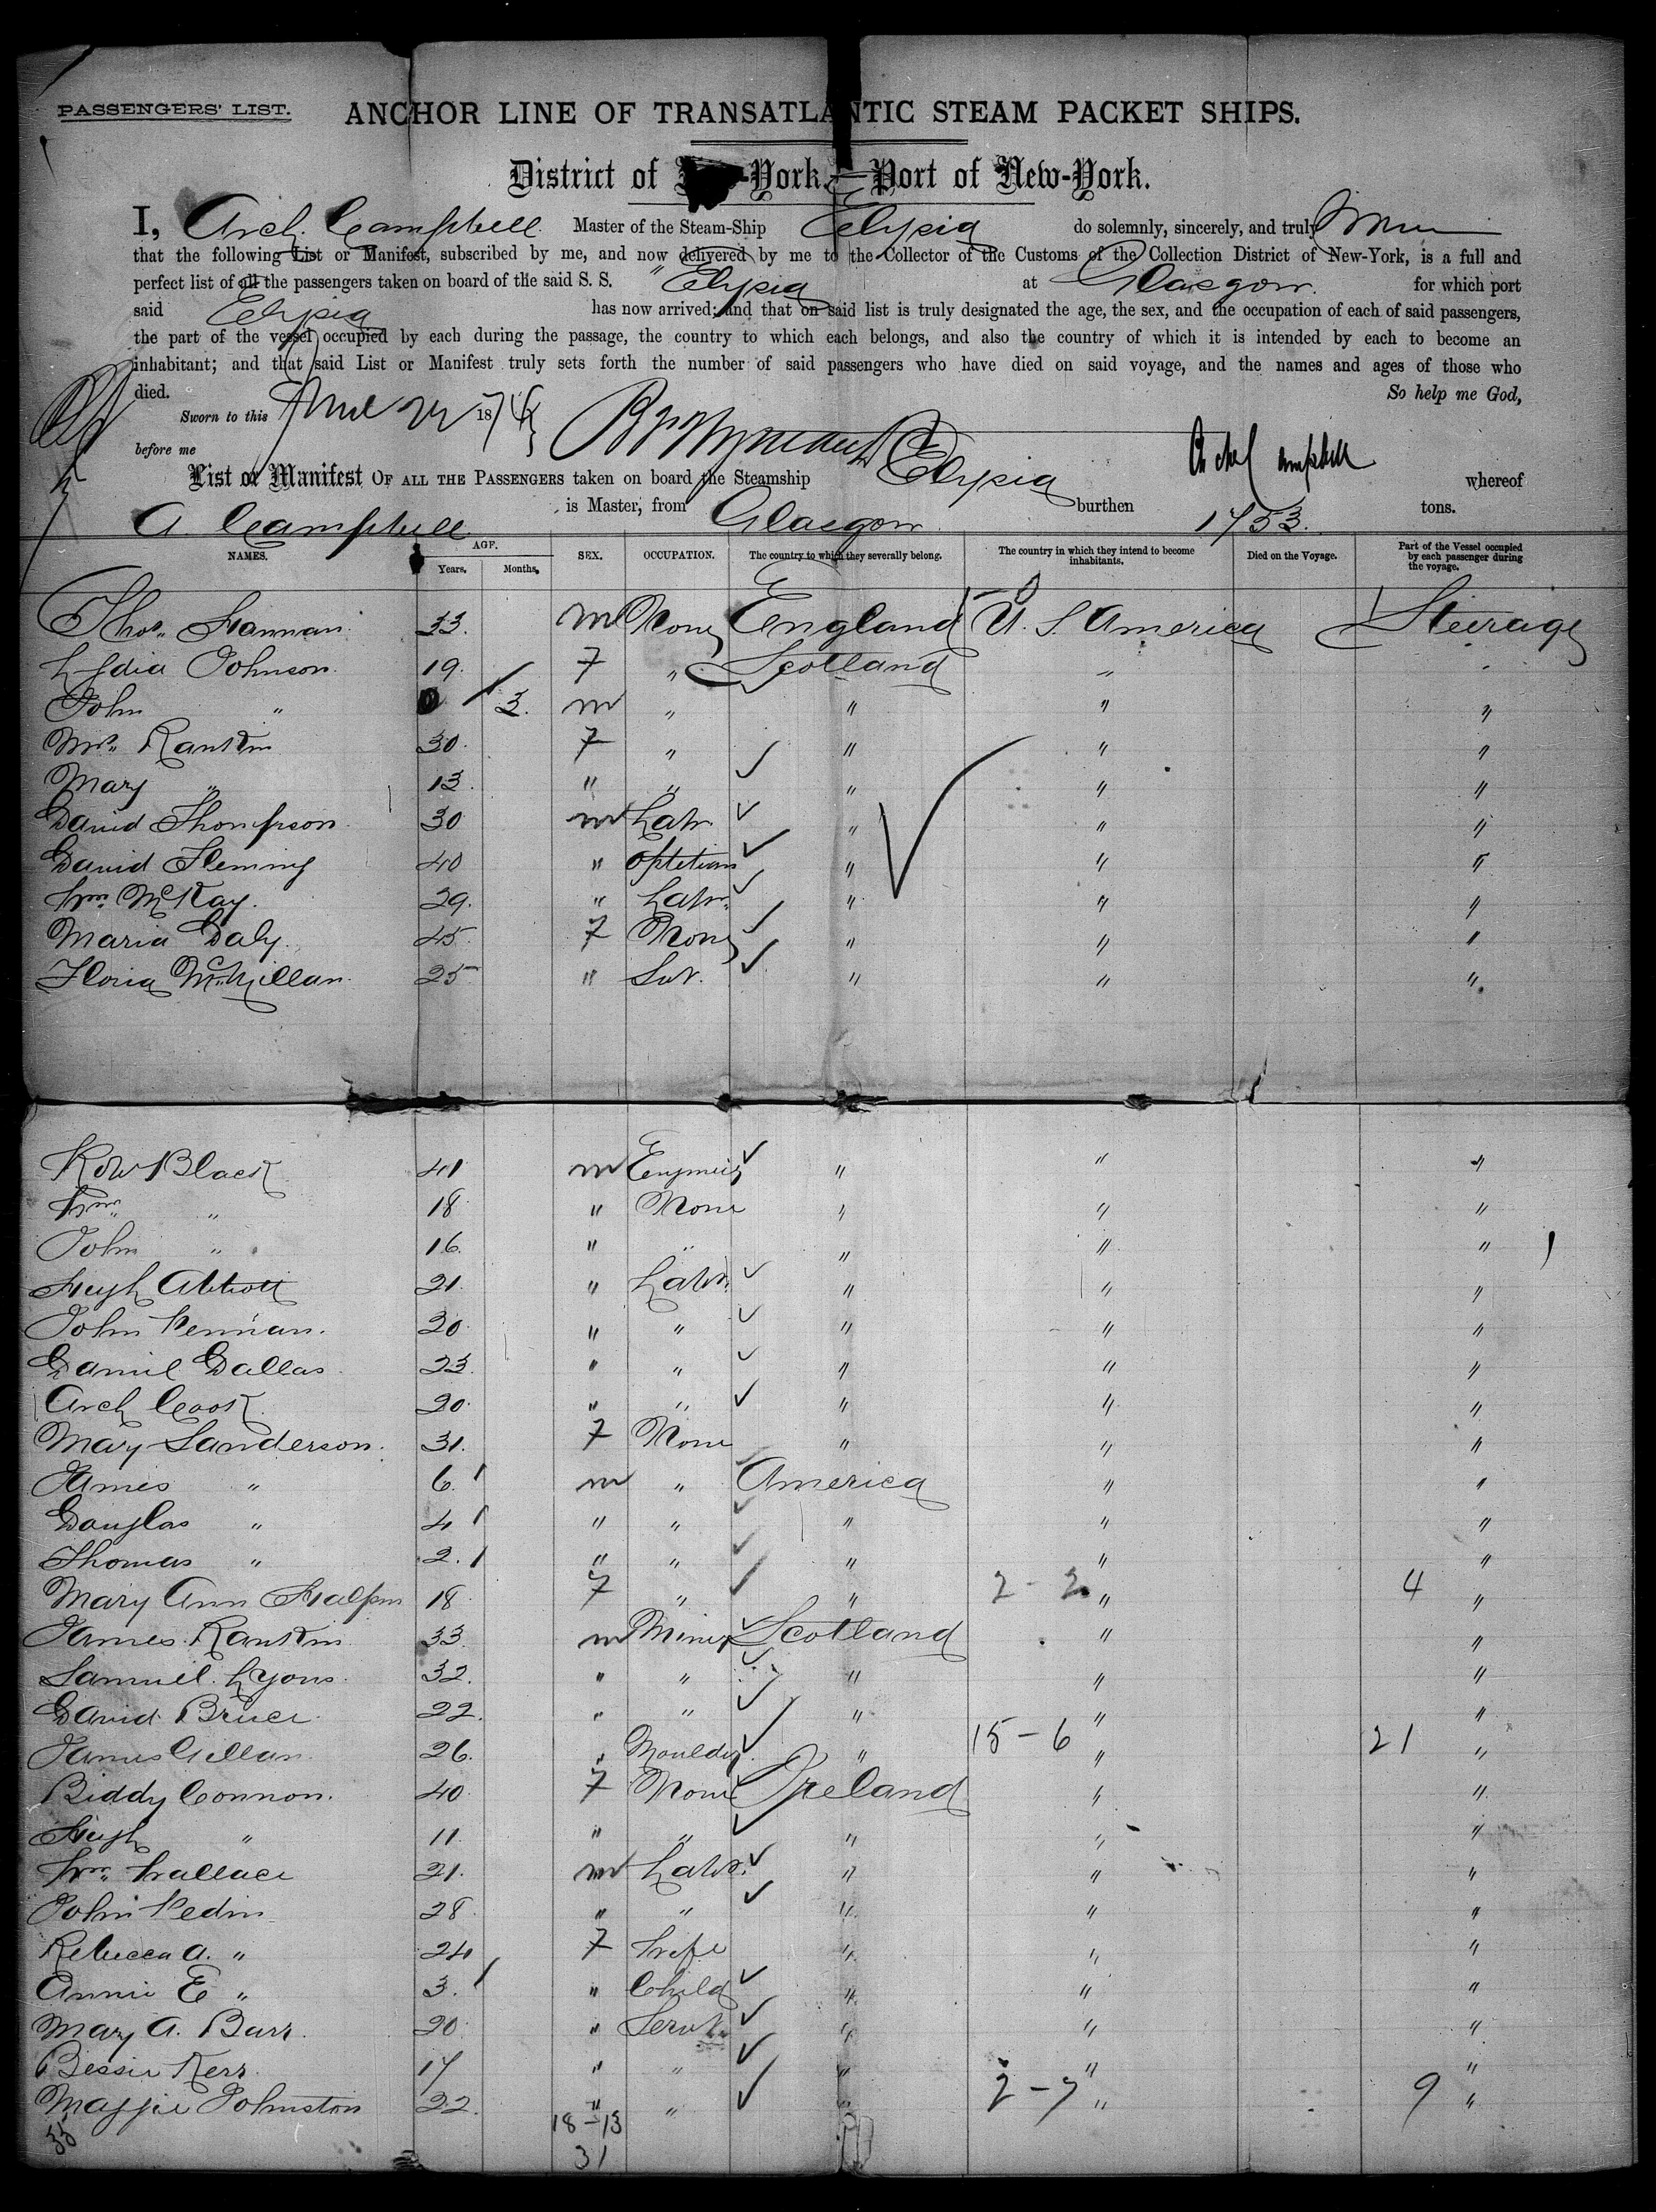 PASSENGERS' LIST. ANCHOR LINE OF TRANSATLANTIC STEAM PACKET SHIPS.
District of New-York, Port of New-York.
I, Arch. Campbell Master of the Steam-Ship Elysia do solemnly, sincerely, and truly
that the following List or Manifest, subscribed by me, and now delivered by me to the Collector of the Customs of the Collection District of New-York, is a full and
perfect list of all the passengers taken on board of the said S. S. "Elysia at Glasgow. for which port
said Elysia has now arrived; and that on said list is truly designated the age, the sex, and the occupation of each of said passengers,
the part of the vessel occupied by each during the passage, the country to which each belongs, and also the country of which it is intended by each to become an
inhabitant; and that said List or Manifest truly sets forth the number of said passengers who have died on said voyage, and the names and ages of those who
died. So help me God,
Sworn to this June 18
before me
List or Manifest OF ALL THE PASSENGERS taken on board the Steamship Elysia whereof
A. Campbell is Master, from Glasgow burthen 1753. tons.
NAMES. AGE. Years. Months. SEX. OCCUPATION. The country to which they severally belong. The country in which they intend to become inhabitants. Died on the Voyage. Part of the Vessel occupied by each passenger during the voyage.
Thos. Hannan 33. M None England U. S. America Steerage
Lydia Johnson 19. F " Scotland " "
John " 0 3. M " " " "
Mrs. Rankin 30. F " " " "
Mary " 13. " " " " "
David Thompson 30 M Labr. " " "
David Fleming 40 " Optetian " " "
Wm. McKay. 29. " Labr. " " "
Maria Daly. 45. F None " " "
Floria McMillan. 25 " Svt. " " "
Robt Black 41 M Engineer " " "
Wm. " 18 " None " " "
John " 16. " " " " "
Hugh Abbott 21. " Labr. " " "
John Pennan. 20. " " " " "
Daniel Dallas. 23. " " " " "
Arch Cook 20. " " " " "
Mary Sanderson. 31. F None " " "
James " 6. M " America " "
Douglas " 4 " " " " "
Thomas " 2. " " " " "
Mary Ann Halpin 18 F " " 2 - 2 " 4 "
James Rankin 33. M Miner Scotland " "
Samuel Lyons. 32. " " " " "
David Bruce 22. " " " " "
James Gillan. 26. " Moulder " 15 - 6 " 21 "
Biddy Connon. 40. F None Ireland " "
Hugh " 11 " " " " "
Wm. Wallace 21. M Labr. " " "
John Pedin 28 " " " " "
Rebecca A. " 24 F Wife " " "
Annie E " 3. " Child " " "
Mary A. Barr. 20. " Servt. " " "
Bessie Kerr. 17 " " " " "
Maggie Johnston 22. " " " 2 - 7 " 9 "
35 18 - 13
31